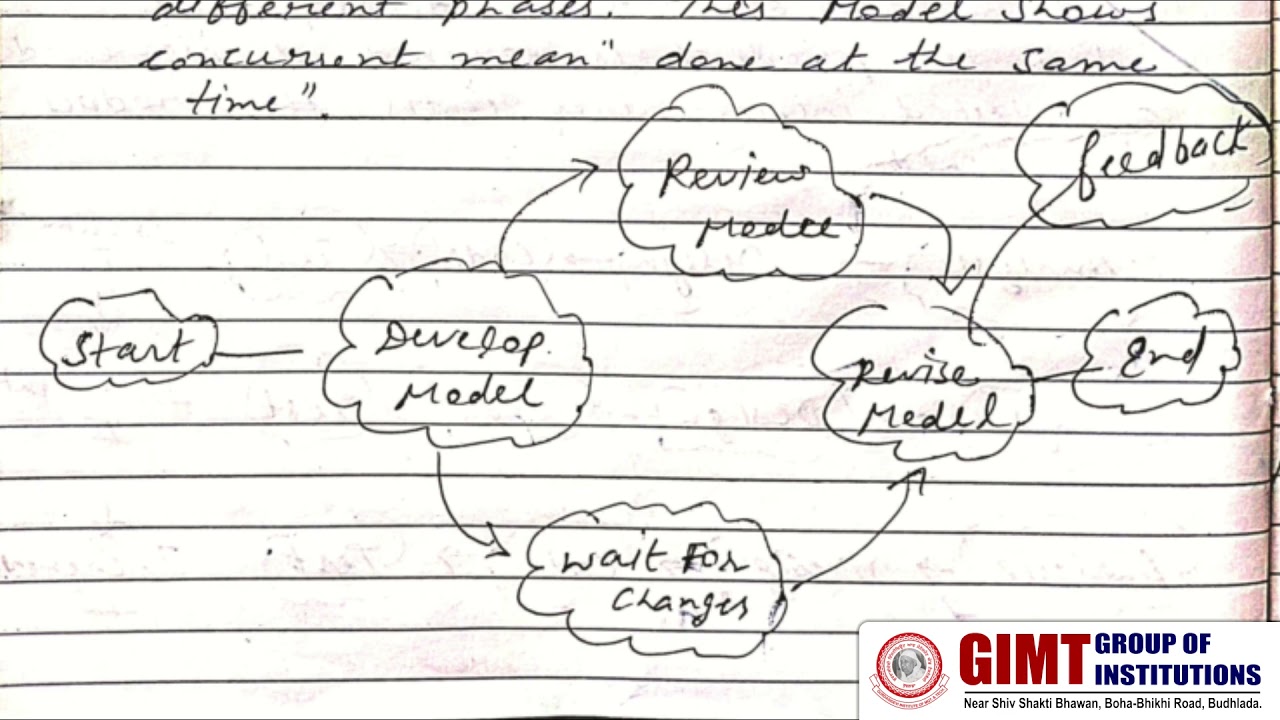 different phases. This Model shows
concurrent mean" done at the same
time".
Review
Model
feedback
Start
Develop
Model
Revise
Model
End
Wait For
Changes
GIMT GROUP OF
INSTITUTIONS
Near Shiv Shakti Bhawan, Boha-Bhikhi Road, Budhlada.